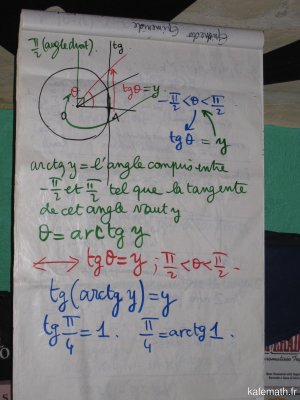 π/2 (angle droit).
tg
θ
tgθ = y
O
A
-π/2 < θ < π/2
tgθ = y
arctg y = l'angle compris entre
-π/2 et π/2 tel que la tangente
de cet angle vaut y
θ = arctg y
⟷ tgθ = y ; π/2 < θ < π/2.
tg(arctg y) = y
tg π/4 = 1. π/4 = arctg 1.
kafemath.fr